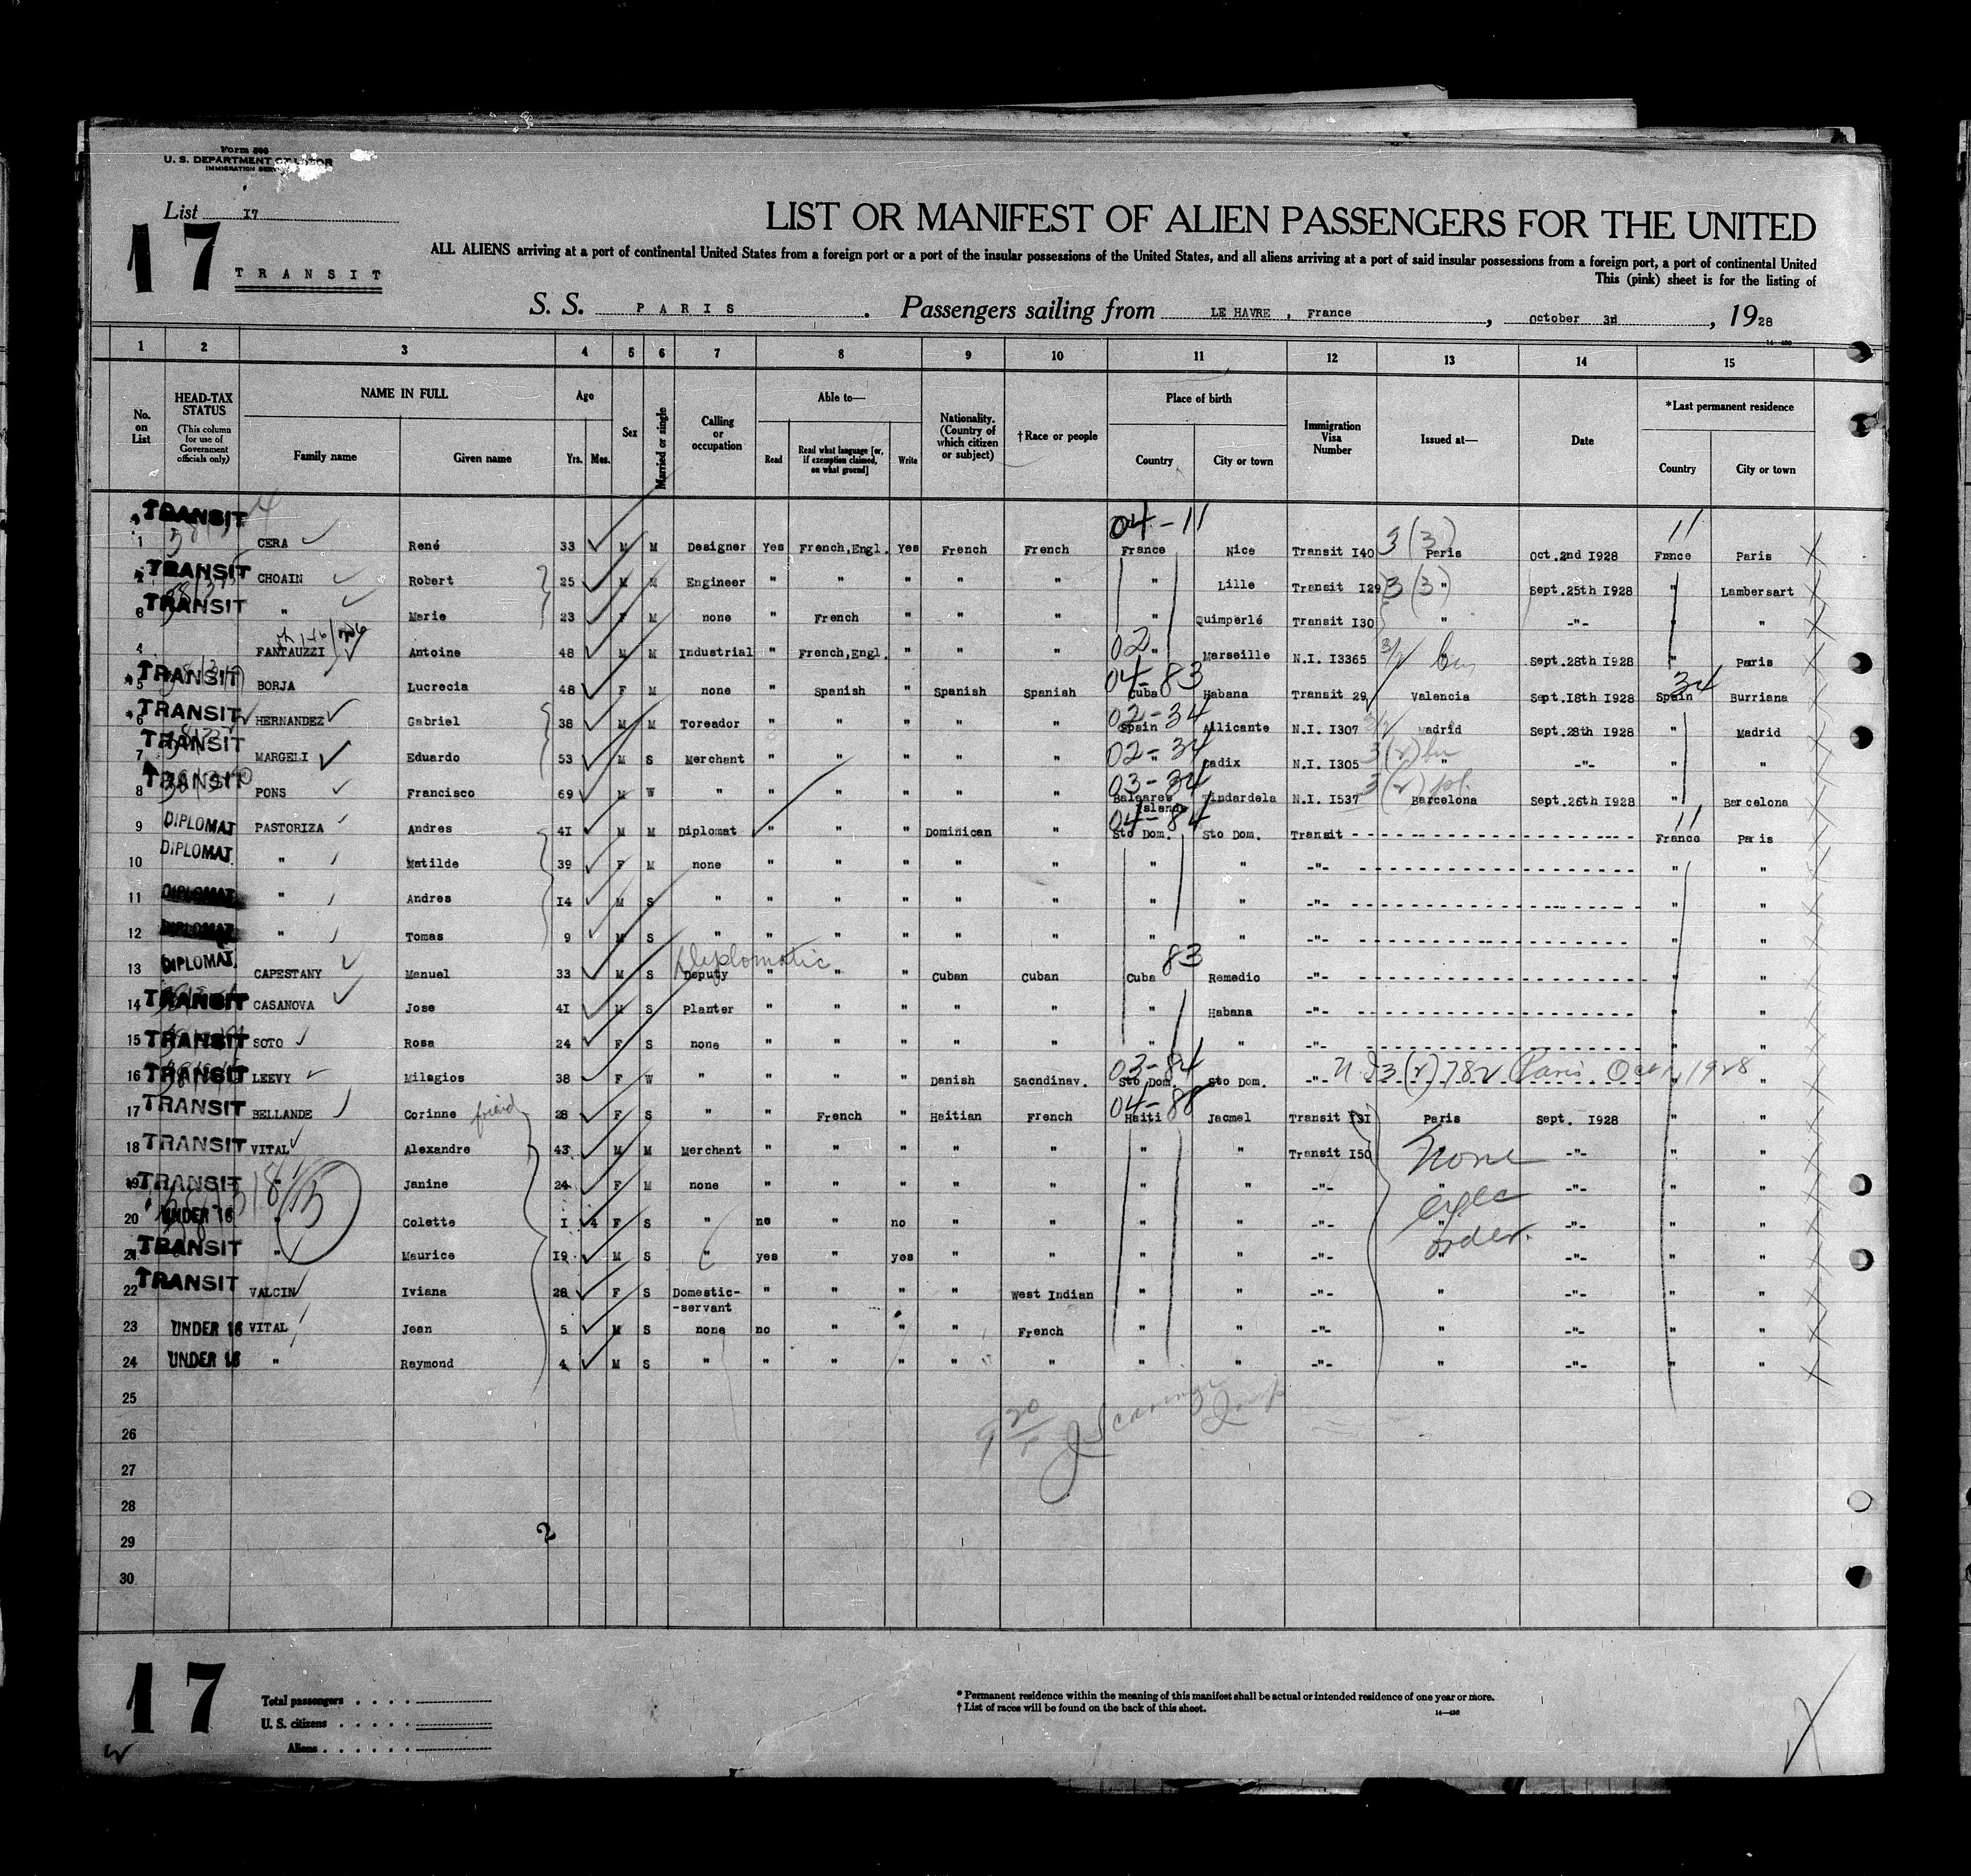 Form 500
U. S. DEPARTMENT OF LABOR
IMMIGRATION SERVICE
List I7
17
TRANSIT
LIST OR MANIFEST OF ALIEN PASSENGERS FOR THE UNITED
ALL ALIENS arriving at a port of continental United States from a foreign port or a port of the insular possessions of the United States, and all aliens arriving at a port of said insular possessions from a foreign port, a port of continental United
This (pink) sheet is for the listing of
S. S. PARIS. Passengers sailing from LE HAVRE , France, October 3d, 1928
1 2 3 4 5 6 7 8 9 10 11 12 13 14 15
No. on List
HEAD-TAX STATUS (This column for use of Government officials only)
NAME IN FULL Family name Given name
Age Yrs. Mos.
Sex
Married or single
Calling or occupation
Able to— Read Read what language [or, if exemption claimed, on what ground] Write
Nationality. (Country of which citizen or subject)
†Race or people
Place of birth Country City or town
Immigration Visa Number
Issued at—
Date
*Last permanent residence Country City or town
04-11 11
1 TRANSIT CERA René 33 M M Designer Yes French,Engl. Yes French French France Nice Transit I40 3(3) Paris Oct.2nd I928 France Paris
2 TRANSIT CHOAIN Robert 25 M M Engineer " " " " " " Lille Transit I29 3(3) " Sept.25th I928 " Lambersart
3 TRANSIT " Marie 23 F M none " French " " " " Quimperlé Transit I30 " -"- " "
4 FANTAUZZI Antoine 48 M M Industrial " French,Engl. " " " 02 " Marseille N.I. I3365 " Sept.28th I928 " Paris
5 TRANSIT BORJA Lucrecia 48 F M none " Spanish " Spanish Spanish 04-83 Cuba Habana Transit 29 Valencia Sept.I8th I928 34 Spain Burriana
6 TRANSIT HERNANDEZ Gabriel 38 M M Toreador " " " " " 02-34 Spain Alicante N.I. I307 Madrid Sept.28th I928 " Madrid
7 TRANSIT MARGELI Eduardo 53 M S Merchant " " " " " 02-34 " Cadix N.I. I305 " -"- " "
8 TRANSIT PONS Francisco 69 M W " " " " " " 03-34 Baleares Islands Tindardela N.I. I537 Barcelona Sept.26th I928 " Barcelona
9 DIPLOMAT PASTORIZA Andres 4I M M Diplomat " " " Dominican " 04-84 Sto Dom. Sto Dom. Transit 11 France Paris
10 DIPLOMAT " Matilde 39 F M none " " " " " " " -"- " "
11 DIPLOMAT " Andres I4 M S " " " " " " " " -"- " "
12 DIPLOMAT " Tomas 9 M S " " " " " " " " -"- " "
13 DIPLOMAT CAPESTANY Manuel 33 M S Deputy Diplomatic " " " Cuban Cuban Cuba 83 Remedio -"- " "
14 TRANSIT CASANOVA Jose 4I M S Planter " " " " " " Habana -"- " "
15 TRANSIT SOTO Rosa 24 F S none " " " " " " " -"- " "
16 TRANSIT LEEVY Milagios 38 F W " " " " Danish Sacndinav. 03-84 Sto Dom. Sto Dom. -"- N.I 3(2) 782 Paris Oct 1, 1928 " "
17 TRANSIT BELLANDE Corinne friend 28 F S " " French " Haitian French 04-88 Haiti Jacmel Transit I3I Paris Sept. I928 " "
18 TRANSIT VITAL Alexandre 43 M M Merchant " " " " " " " Transit I50 None -"- " "
19 TRANSIT " Janine 24 F M none " " " " " " " -"- " -"- " "
20 UNDER 16 " Colette I 4 F S " no " no " " " " -"- " -"- " "
21 TRANSIT " Maurice I9 M S " yes " yes " " " " -"- order. " -"- " "
22 TRANSIT VALCIN Iviana 28 F S Domestic- -servant " " " " West Indian " " -"- " -"- " "
23 UNDER 16 VITAL Jean 5 M S none no " " " French " " -"- " -"- " "
24 UNDER 16 " Raymond 4 M S " " " " " " " " -"- " -"- " "
25
26
27
28
29
30
2
17
Total passengers
U. S. citizens
Aliens
* Permanent residence within the meaning of this manifest shall be actual or intended residence of one year or more.
† List of races will be found on the back of this sheet.
14—430